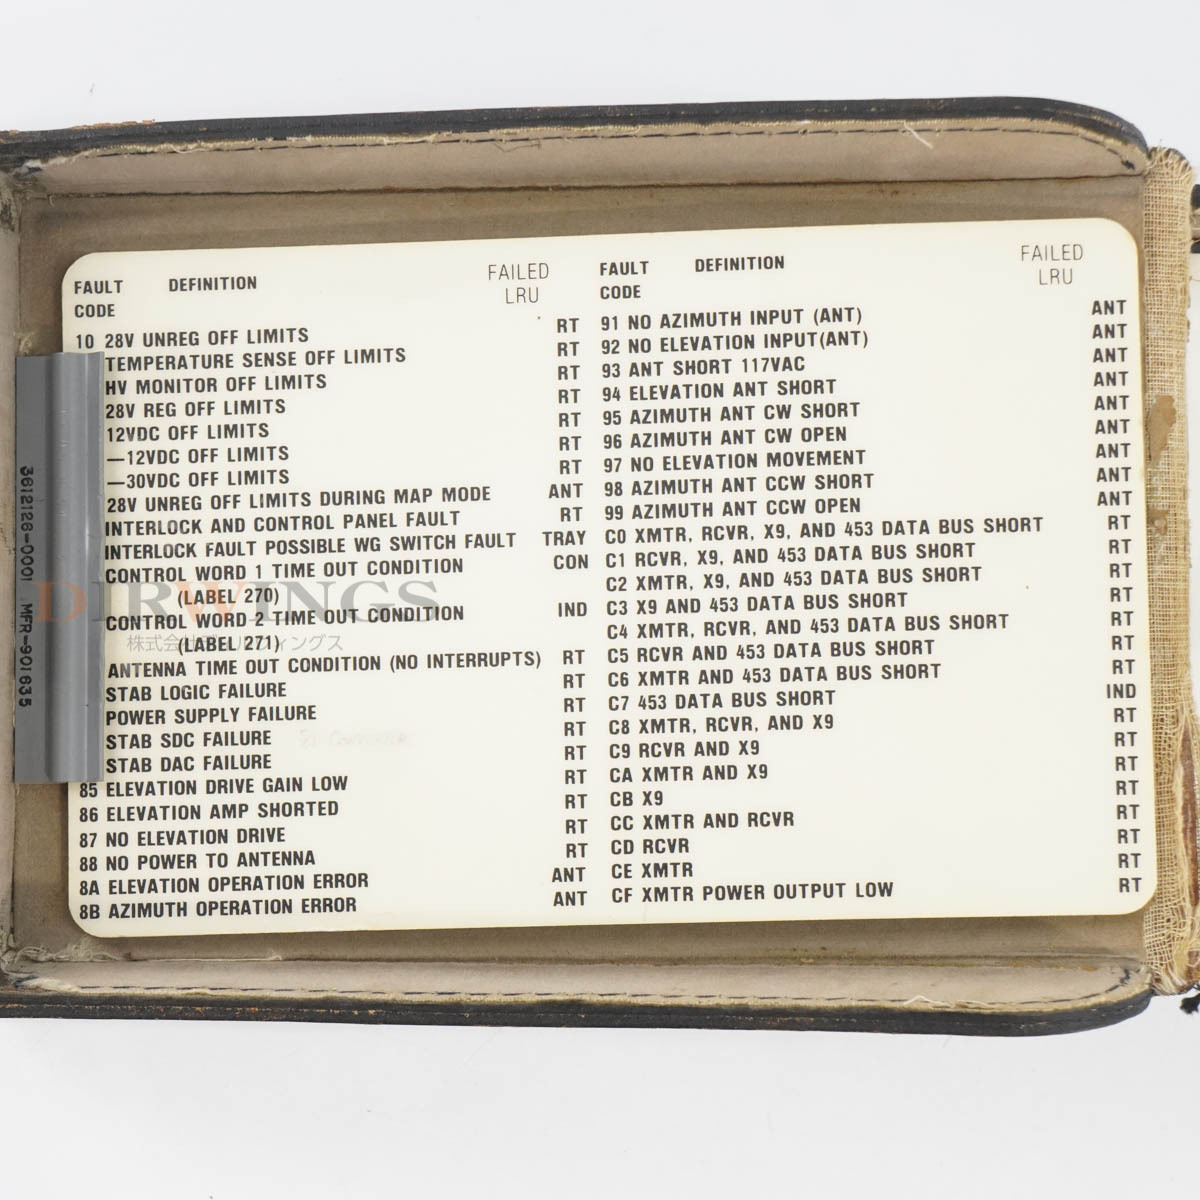 FAULT CODE DEFINITION FAILED LRU
10 28V UNREG OFF LIMITS RT
TEMPERATURE SENSE OFF LIMITS RT
HV MONITOR OFF LIMITS RT
28V REG OFF LIMITS RT
12VDC OFF LIMITS RT
—12VDC OFF LIMITS RT
—30VDC OFF LIMITS RT
28V UNREG OFF LIMITS DURING MAP MODE ANT
INTERLOCK AND CONTROL PANEL FAULT RT
INTERLOCK FAULT POSSIBLE WG SWITCH FAULT TRAY
CONTROL WORD 1 TIME OUT CONDITION CON
(LABEL 270)
CONTROL WORD 2 TIME OUT CONDITION IND
(LABEL 271)
ANTENNA TIME OUT CONDITION (NO INTERRUPTS) RT
STAB LOGIC FAILURE RT
POWER SUPPLY FAILURE RT
STAB SDC FAILURE RT
STAB DAC FAILURE RT
85 ELEVATION DRIVE GAIN LOW RT
86 ELEVATION AMP SHORTED RT
87 NO ELEVATION DRIVE RT
88 NO POWER TO ANTENNA RT
8A ELEVATION OPERATION ERROR ANT
8B AZIMUTH OPERATION ERROR ANT
FAULT CODE DEFINITION FAILED LRU
91 NO AZIMUTH INPUT (ANT) ANT
92 NO ELEVATION INPUT(ANT) ANT
93 ANT SHORT 117VAC ANT
94 ELEVATION ANT SHORT ANT
95 AZIMUTH ANT CW SHORT ANT
96 AZIMUTH ANT CW OPEN ANT
97 NO ELEVATION MOVEMENT ANT
98 AZIMUTH ANT CCW SHORT ANT
99 AZIMUTH ANT CCW OPEN ANT
C0 XMTR, RCVR, X9, AND 453 DATA BUS SHORT RT
C1 RCVR, X9, AND 453 DATA BUS SHORT RT
C2 XMTR, X9, AND 453 DATA BUS SHORT RT
C3 X9 AND 453 DATA BUS SHORT RT
C4 XMTR, RCVR, AND 453 DATA BUS SHORT RT
C5 RCVR AND 453 DATA BUS SHORT RT
C6 XMTR AND 453 DATA BUS SHORT RT
C7 453 DATA BUS SHORT IND
C8 XMTR, RCVR, AND X9 RT
C9 RCVR AND X9 RT
CA XMTR AND X9 RT
CB X9 RT
CC XMTR AND RCVR RT
CD RCVR RT
CE XMTR RT
CF XMTR POWER OUTPUT LOW RT
3612126-0001 MFR-901635
DIRWINGS